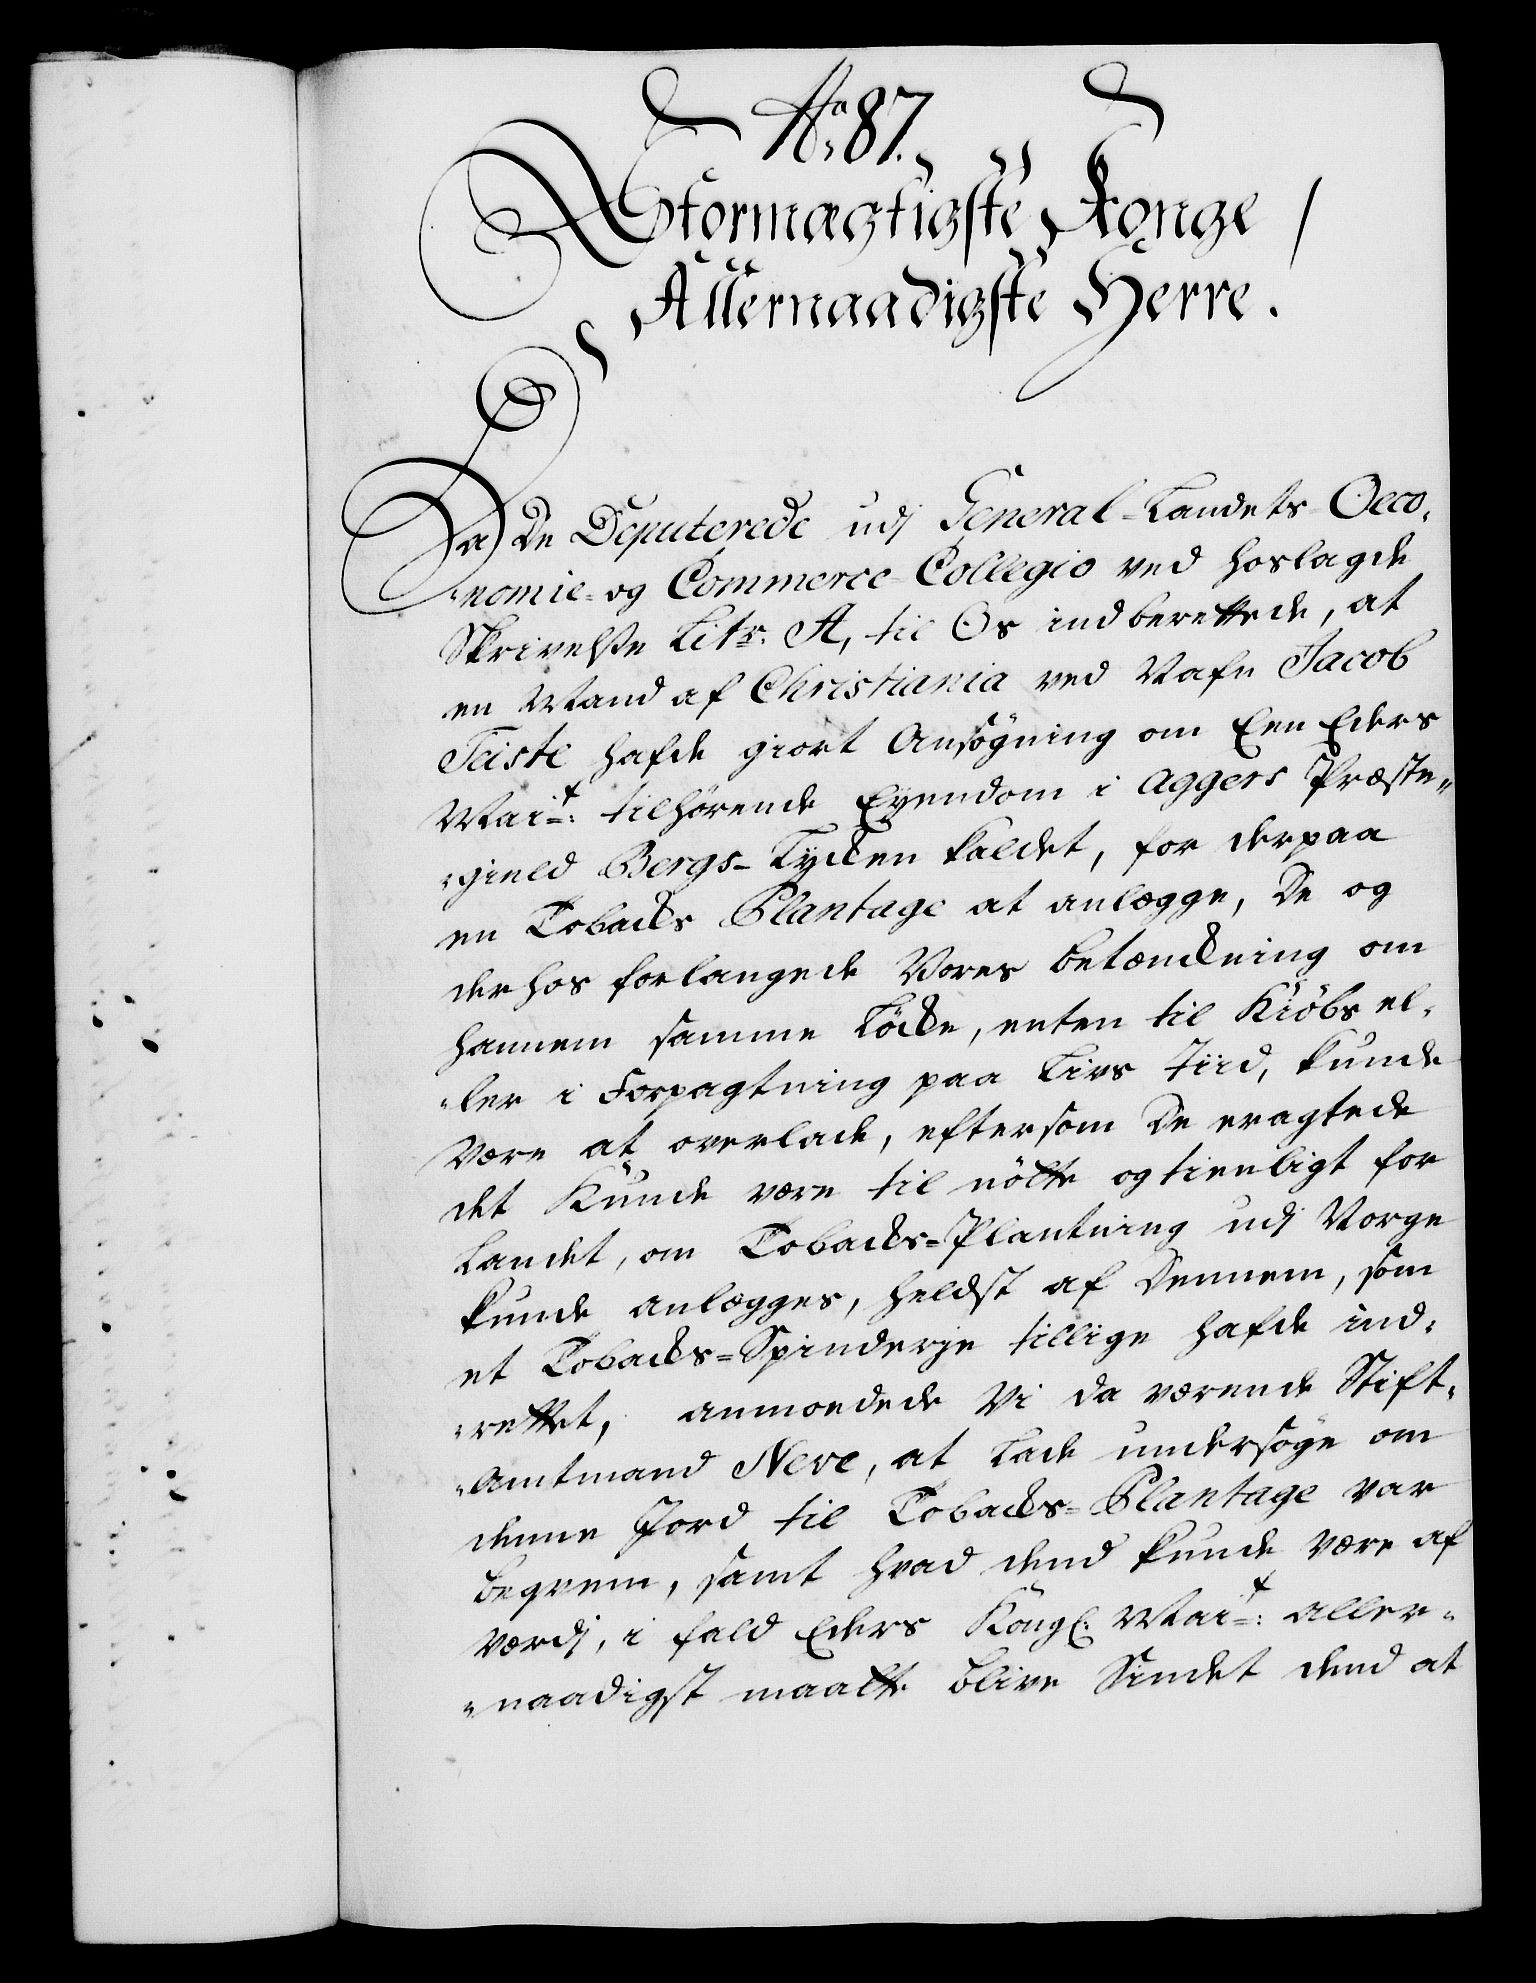 No 87.
Stormægtigste Konge /
Allernaadigste Herre.
Da De Deputerede udj General-Landets-Oeco-
-nomie- og Commerce-Collegio ved hoslagde
Skrivelse Litr: A, til Os indberettede, at
en Mand af Christiania ved Nafn Jacob
Teiste hafde giort Ansøgning om Een Eders
Mait: tilhørende Eyendom i Aggers Præste-
-gield Bergs-Lycken kaldet, for derpaa
en Tobacks Plantage at anlægge, De og
derhos forlangede Vores betænckning om
hannem samme Löcke, enten til Kiöbs el-
-ler i Forpagtning paa Livs Tiid, kunde
være at overlade, eftersom De eragtede
det kunde være til nötte og tienligt for
Landet, om Tobacks-Plantning udj Norge
kunde anlægges, heldst af Dennem, som
et Tobacks-Spinderje tillige hafde ind-
-rettet, anmodede Vi da værende Stift-
-Amtmand Neve, at lade undersøge om
denne Jord til Tobacks-Plantage var
beqvem, samt hvad dend kunde være af
Værdj, i fald Eders Kongl: Mait: aller-
-naadigst maatte blive Sindet dend at